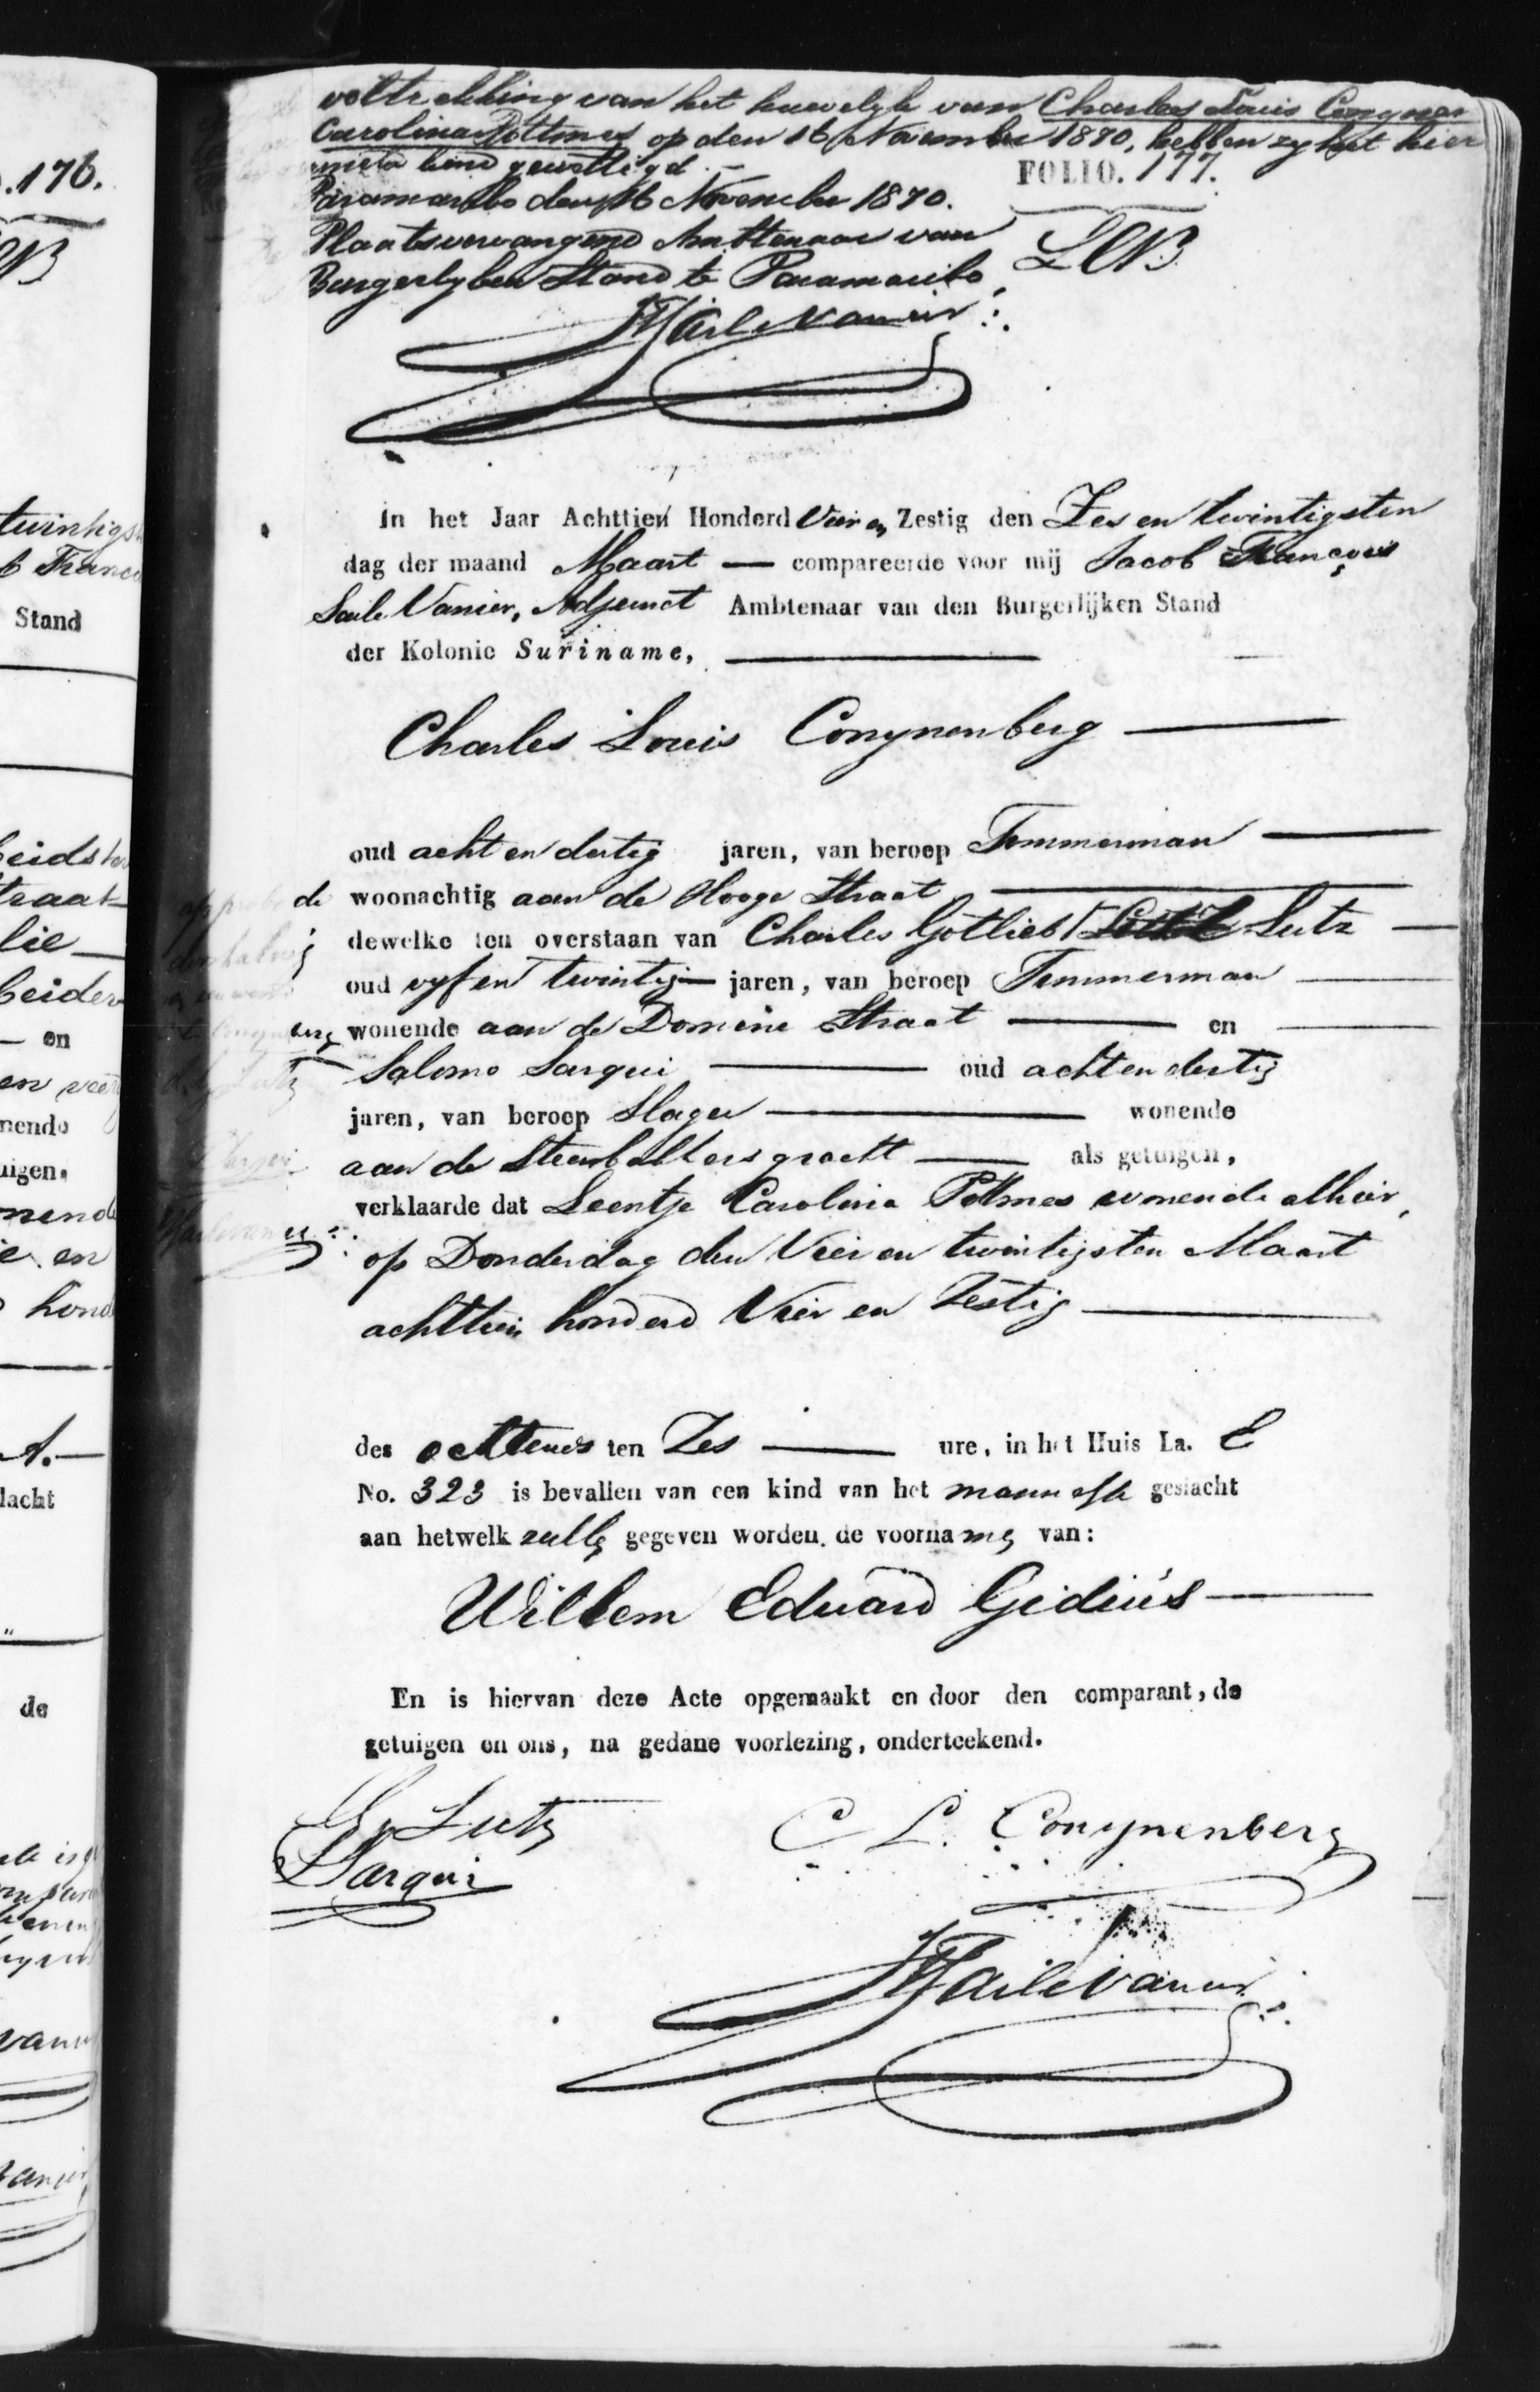 voltrekking van het huwelyk van Charles Louis Conynen
Carolina Pottmes op den 16 November 1870, hebben zy het hier
kind gewettigd.
FOLIO. 177.
Paramaribo den 16 November 1870.
Plaatsvervangend Ambtenaar van
Burgerlyken Stand te Paramaribo,
In het Jaar Achttien Honderd Vier en Zestig den Zes en twintigsten
dag der maand Maart — compareerde voor mij Jacob François
Saile Vanier, Adjunct Ambtenaar van den Burgerlijken Stand
der Kolonie Suriname,
Charles Louis Conynenberg
oud acht en dertig jaren, van beroep Temmerman
woonachtig aan de Hooge Straat
dewelke ten overstaan van Charles Gotlieb Lutz
oud vyf en twintig jaren, van beroep Temmerman
wonende aan de Domine Straat en
Salomo Sarqui oud acht en dertig
jaren, van beroep Slager wonende
aan de Steenbakkersgracht als getuigen,
verklaarde dat Leentje Carolina Pottmes wonende alhier,
op Donderdag den Vier en twintigsten Maart
achttien honderd Vier en Zestig
des ochtends ten Zes ure, in het Huis La. E
No. 323 is bevallen van een kind van het mannelyk geslacht
aan hetwelk zullen gegeven worden de voornamen van:
Willem Eduard Gidius
En is hiervan deze Acte opgemaakt en door den comparant, de
getuigen en ons, na gedane voorlezing, onderteekend.
Lutz
C L. Conynenberg
Sarqui
JFSailevanier
.176.
Stand
en
wonende
lacht
de